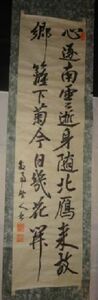 心逐南雲逝身隨北鴈来故
鄉籬下菊今日幾花開